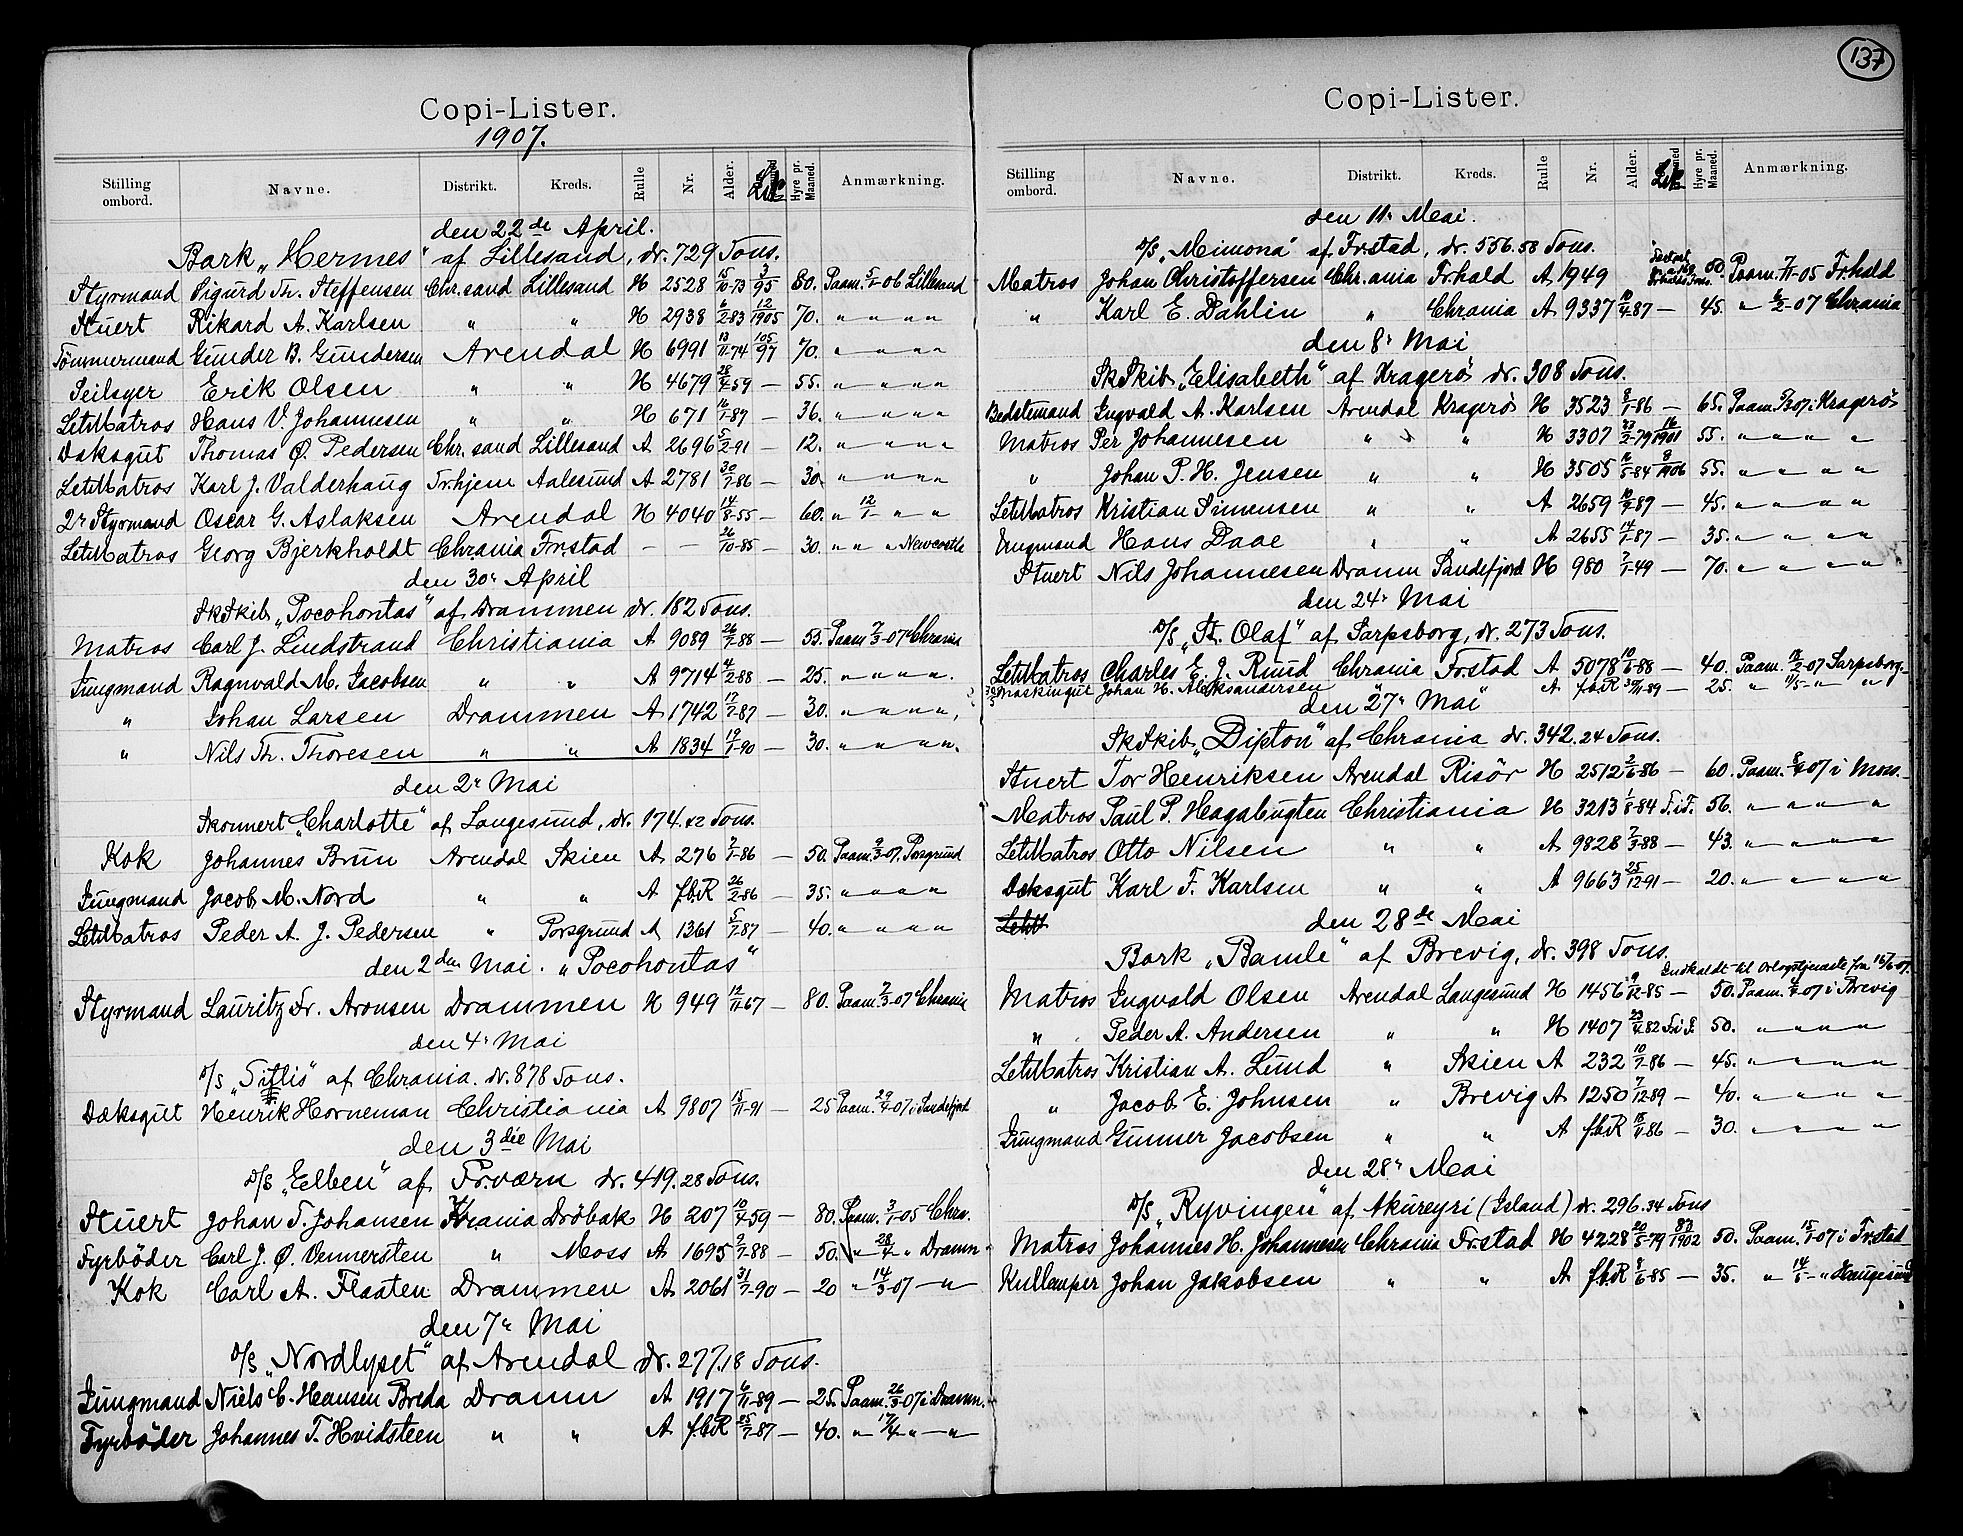 Copi-Lister.
1907.
Stilling ombord. Navne. Distrikt. Kreds. Rulle Nr. Alder. Hyre pr. Maaned. Anmærkning.
den 22de April.
Bark „Hermes" af Lillesand, dr. 729 Tons.
Styrmand Sigurd Th. Steffensen Chr.sand Lillesand H 2528 15/10-73 3/95 80. Paam. 5/1-06 Lillesand
Stuert Rikard A. Karlsen " " H 2938 6/2-83 12/1905 70. " " " "
Tømmermand Gunder B. Gundersen Arendal H 6991 13/11-74 105/97 70. " " " "
Seilsyer Erik Olsen " " H 4679 28/4-59 — 55. " " " "
LetMatros Hans V. Johannesen " " H 671 16/1-87 — 36. " " " "
Dæksgut Thomas Ø. Pedersen Chr.sand Lillesand A 2696 5/2-91 — 12. " " " "
LetMatros Karl J. Valderhaug Tr.hjem Aalesund A 2781 30/7-86 — 30. " " " "
2r Styrmand Oscar G. Aslaksen Arendal H 4040 14/8-55 — 60. " 12/1 " "
LetMatros Georg Bjerkholdt Chrania Frstad — — 26/10-85 — 30. " " " Newcastle
den 30r April
SkSkib „Pocohontas" af Drammen dr. 182 Tons.
Matros Carl J. Lindstrand Christiania A 9089 26/7-88 — 55. Paam. 7/3-07 Chrania
Jungmand Ragnvald M. Jacobsen " " A 9714 4/2-88 — 25. " " " "
" Johan Larsen Drammen A 1742 17/7-87 — 30. " " " "
" Nils Th. Thoresen " " A 1834 19/1-90 — 30. " " " "
den 2r Mai
Skonnert „Charlotte" af Langesund, dr. 174.82 Tons.
Kok Johannes Brun Arendal Skien A 276 7/1-86 — 50. Paam. 9/3-07. Porsgrund
Jungmand Jacob M. Nord " " A fbR 26/2-86 — 35. " " " "
LetMatros Peder A. J. Pedersen " Porsgrund A 1361 5/7-87 — 40. " " " "
den 2den Mai. „Pocohontas"
Styrmand Lauritz Fr. Aronsen Drammen H 949 12/11-67 — 80. Paam. 7/3-07 Chrania
den 4r Mai
D/S „Tiflis" af Chrania. dr. 878 Tons.
Dæksgut Henrik Horneman Christiania A 9807 15/11-91 — 25 Paam. 29/4-07 i Sandefjord
den 3die Mai
D/S „Elben" af Fr.værn dr. 419.28 Tons.
Stuert Johan T. Johansen Krania Drøbak H 207 10/4-59 — 80. Paam. 3/1-05 Chra.
Fyrbøder Carl J. Ø. Vennersten " Moss A 1695 9/7-88 — 50. " 28/4 " Dramn
Kok Carl A. Flaaten Drammen A 2061 31/7-90 — 20 " 14/3-07 — "
den 7r Mai
D/S „Nordlyset" af Arendal dr. 277.18 Tons.
Jungmand Niels C. Hansen Breda Dramn A 1917 6/11-89 — 25. Paam. 26/3-07 i Dramn.
Fyrbøder Johannes T. Hvidsteen " " A fbR 25/7-87 — 40. " 17/4 " — "
137
Copi-Lister.
Stilling ombord. Navne. Distrikt. Kreds. Rulle Nr. Alder. Hyre pr. Maaned. Anmærkning.
den 11r Mai.
D/S „Mimona" af Fr.stad, dr. 556.58 Tons.
Matros Johan Christoffersen Chr.ania Fr.hald A 1949 50. Paam. 7/11-05 Fr.hald
" Karl E. Dahlin " Chrania A 9337 10/4-87 — 45. " 6/2-07 Chrania
den 8r Mai
SkSkib „Elisabeth" af Kragerø dr. 308 Tons.
Bedstemand Ingvald A. Karlsen Arendal Kragerø H 3523 8/1-86 — 65. Paam. 5/3 07 i Kragerø
Matros Per Johannesen " " H 3307 23/2-79 16/1901 55. " " " "
" Johan P. H. Jensen " " H 3505 16/5-84 8/1906 55. " " " "
LetMatros Kristian Simensen " " A 2659 10/9-87 — 45. " " " "
Jungmand Hans Daae " " A 2655 14/1-87 — 35. " " " "
Stuert Nils Johannesen Dramn Sandefjord H 980 7/1-49 — 70. " " " "
den 24r Mai
D/S „St. Olaf" af Sarpsborg, dr. 273 Tons.
LetMatros Charles E. J. Ruud Chrania Frstad A 5078 10/1-88 — 40. Paam. 18/2-07 Sarpsborg.
Maskingut Johan H. Aleksandersen " " A fbR 30/11-89 — 25. " 11/5 - " " "
den 27r Mai
SkSkib „Dipton" af Chrania dr. 342.24 Tons.
Stuert Tor Henriksen Arendal Risør H 2512 2/6-86 — 60. Paam. 8/4 07 i Moss.
Matros Paul P. Hagabugten Christiania H 3213 1/8-84 F.i.F. 56. " " " "
LetMatros Otto Nilsen " " A 9828 7/3-88 — 43. " " " "
Dæksgut Karl F. Karlsen " " A 9663 25/12-91 — 20. " " " "
den 28de Mai
Bark „Bamle" af Brevig, dr. 398 Tons.
Indkaldt til Orlogstjeneste fra 15/6-07.
Matros Ingvald Olsen Arendal Langesund H 1456 9/12-85 — 50. Paam. 4/4-07 i Brevig
" Peder A. Andersen " " H 1407 23/4-82 F.i.F 50. " " " "
LetMatros Kristian A. Lund " Skien A 232 10/7-86 — 45. " " " "
" Jacob E. Johnsen " Brevig A 1250 7/12-89 — 40. " " " "
Jungmand Gunner Jacobsen " " A fbR 15/4-86 — 30. " " " "
den 28r Mai
D/S „Ryvingen" af Akureyri (Island) dr. 296.34 Tons
Matros Johannes H. Johannesen Chrania Frstad H 4228 20/5-79 83/1902 50. Paam. 15/1-07 i Frstad
Kullemper Johan Jakobsen " " A fbR 8/6-85 — 35. " 14/5 - " Haugesund